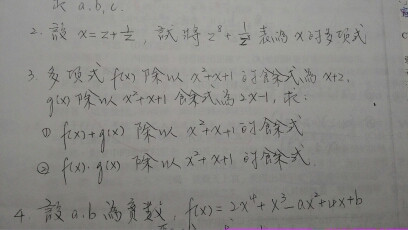 求 a.b.c.
2. 設 x=z+1/z, 試將 z⁸+1/z⁸ 表為 x 的多項式
3. 多項式 f(x) 除以 x²+x+1 的餘式為 x+2,
g(x) 除以 x²+x+1 餘式為 2x-1, 求:
① f(x)+g(x) 除以 x²+x+1 的餘式
② f(x)·g(x) 除以 x²+x+1 的餘式.
4. 設 a.b 為實數, f(x)=2x⁴+x³-ax²+4x+b